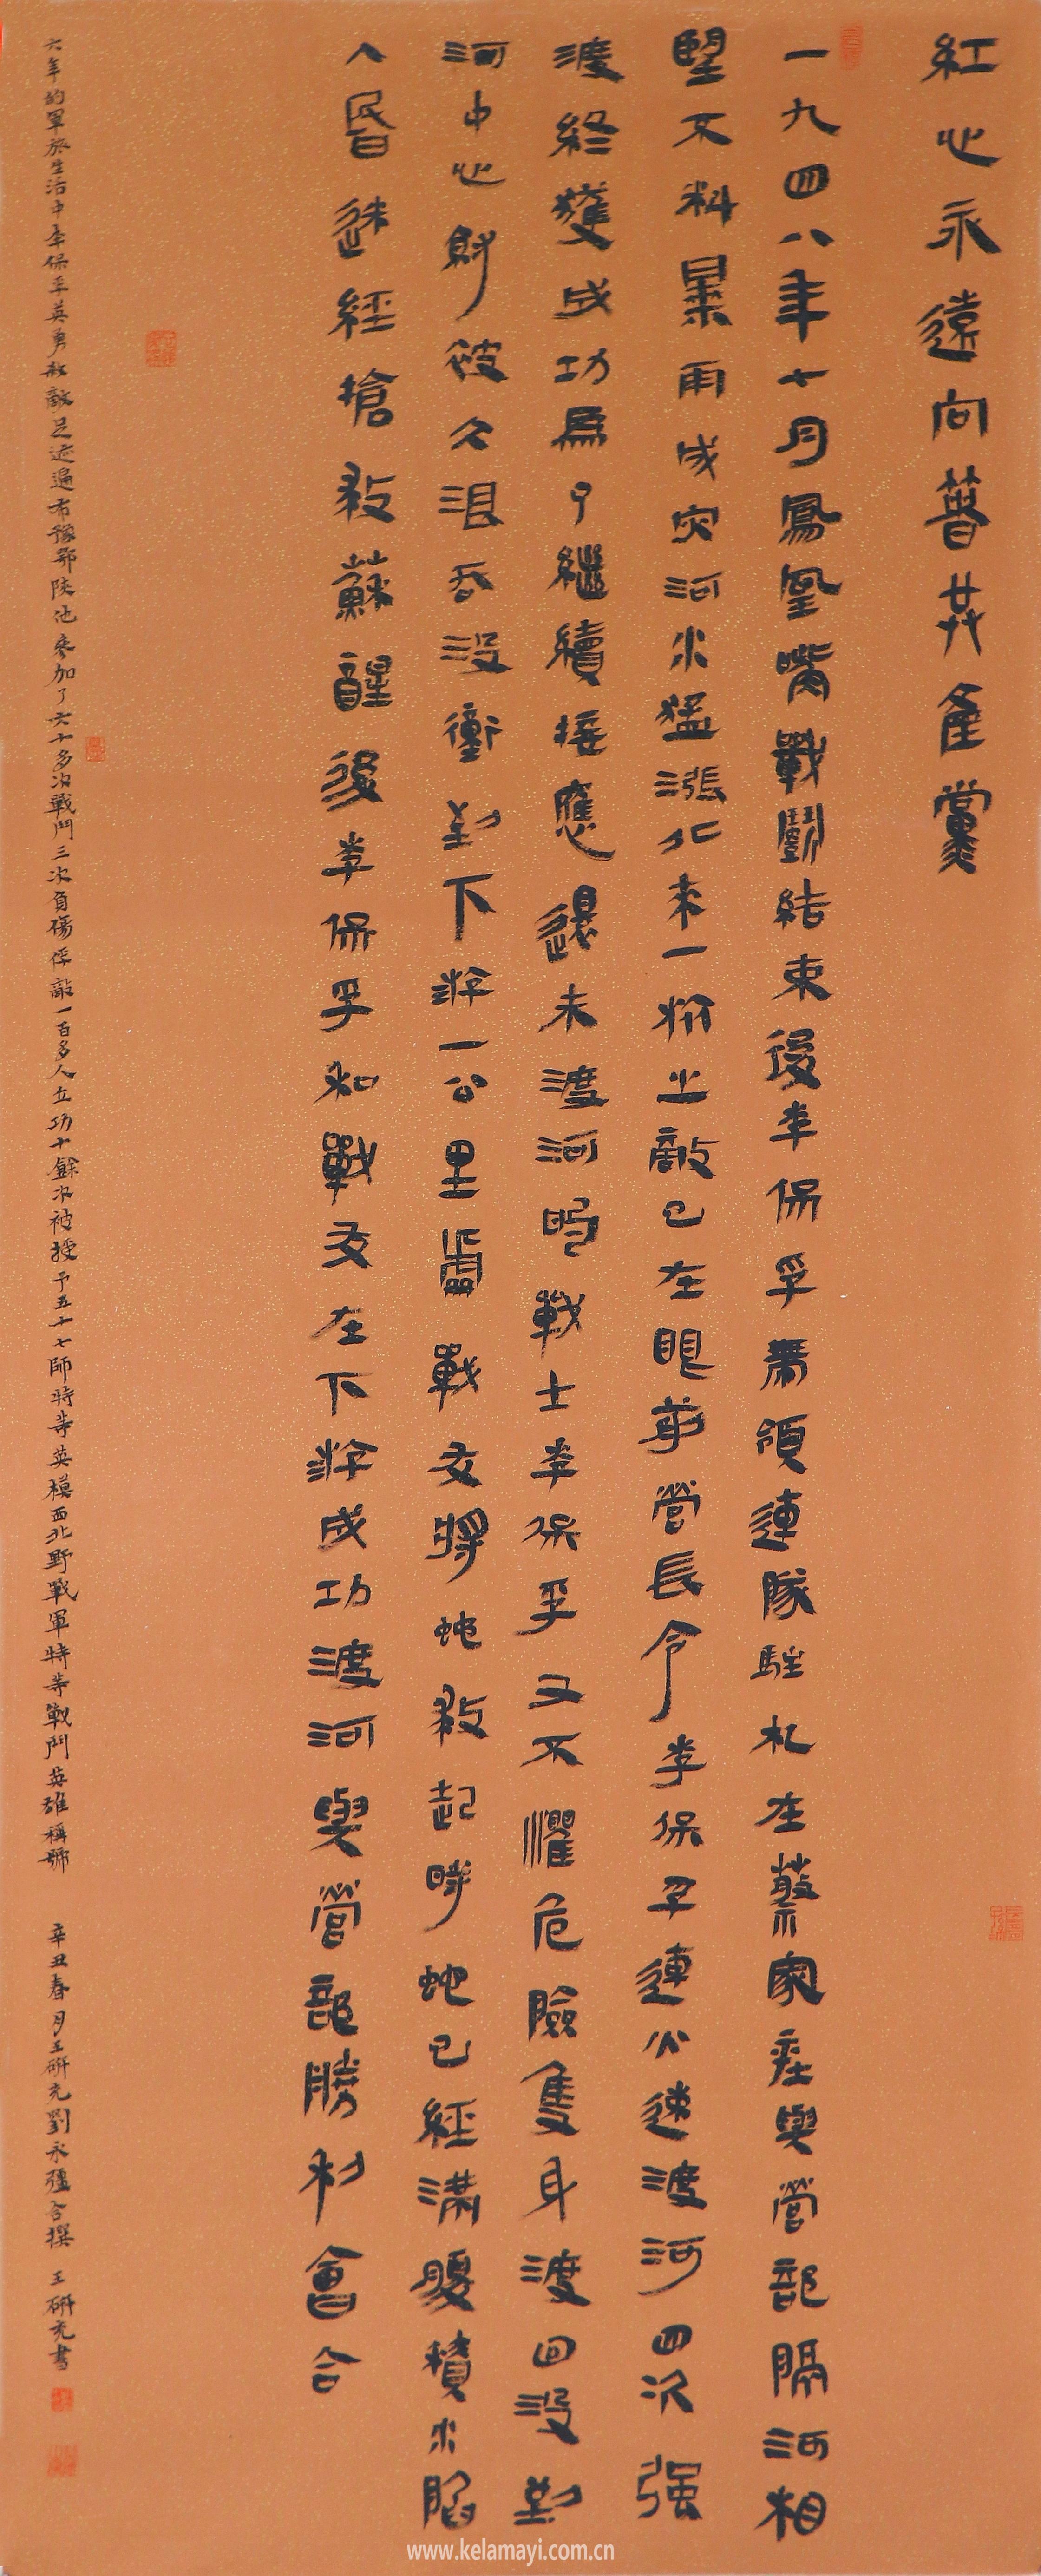 紅心永遠向着共產黨
一九四八年十月鳳凰嘴戰鬭結束後李保孚帶領連隊駐札在蔡家莊與營部隔河相
望不料暴雨成灾河水猛漲北来一之敵已在眼前營長令李保孚連火速渡河四次强
渡終獲成功為了繼續接應還未渡河的戰士李保孚又不懼危險隻身渡回没到
河中心則被大浪吞没衝到下游一公里處戰友將他救起時他已經滿腹積水陷
入昏迷經搶救蘇醒後李保孚和戰友在下游成功渡河與營部勝利會合
六年的軍旅生活中李保孚英勇殺敵足迹遍布豫鄂陕他参加了六十多次戰鬥三次負傷俘敵一百多人立功十餘次被授予五十七師特等英模西北野戰軍特等戰鬥英雄稱號　辛丑春月王研充劉永疆合撰　王研充書
www.kelamayi.com.cn